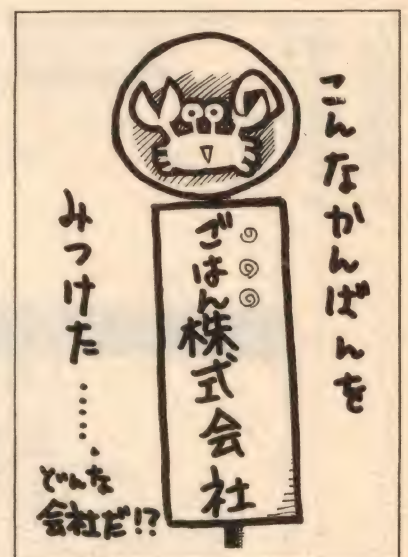 こんなかんばんを
ごはん株式会社
みつけた……．
どんな
会社だ!?